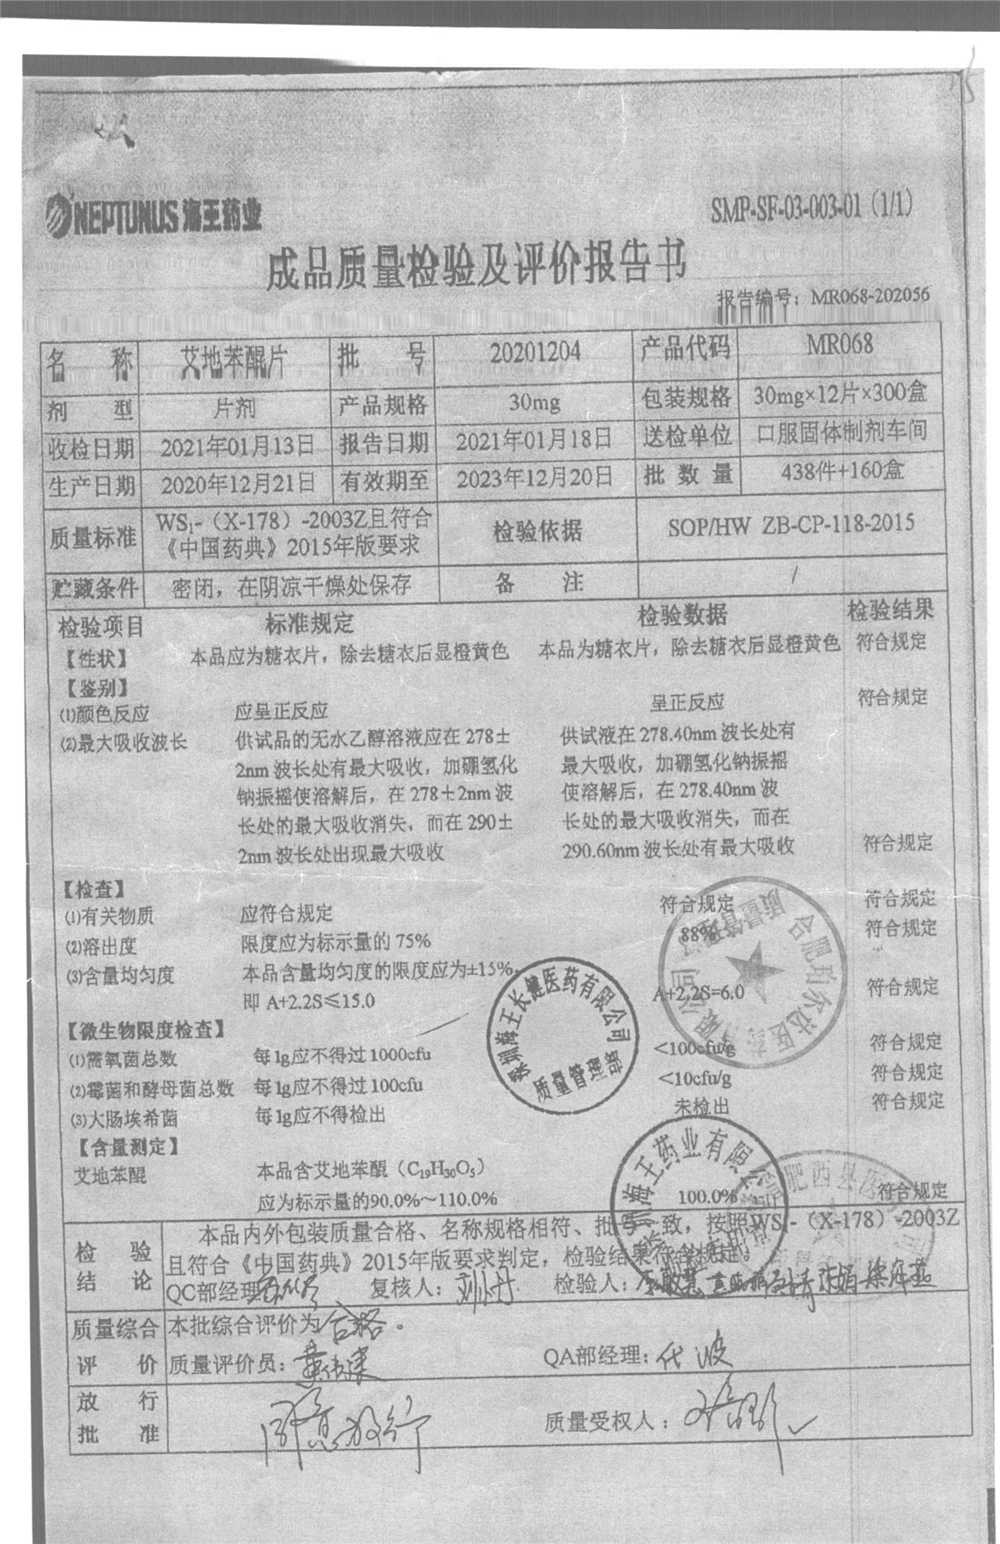 NEPTUNUS 海王药业
SMP-SF-03-003-01（1/1）
成品质量检验及评价报告书
报告编号：MR068-202056
名 称 艾地苯醌片 批 号 20201204 产品代码 MR068
剂 型 片剂 产品规格 30mg 包装规格 30mg×12片×300盒
收检日期 2021年01月13日 报告日期 2021年01月18日 送检单位 口服固体制剂车间
生产日期 2020年12月21日 有效期至 2023年12月20日 批 数 量 438件+160盒
质量标准 WS₁-（X-178）-2003Z且符合《中国药典》2015年版要求 检验依据 SOP/HW ZB-CP-118-2015
贮藏条件 密闭，在阴凉干燥处保存 备 注 /
检验项目 标准规定 检验数据 检验结果
【性状】 本品应为糖衣片，除去糖衣后显橙黄色 本品为糖衣片，除去糖衣后显橙黄色 符合规定
【鉴别】
⑴颜色反应 应呈正反应 呈正反应 符合规定
⑵最大吸收波长 供试品的无水乙醇溶液应在 278± 供试液在 278.40nm 波长处有
2nm 波长处有最大吸收，加硼氢化 最大吸收，加硼氢化钠振摇
钠振摇使溶解后，在 278±2nm 波 使溶解后，在 278.40nm 波
长处的最大吸收消失，而在 290± 长处的最大吸收消失，而在
2nm 波长处出现最大吸收 290.60nm 波长处有最大吸收 符合规定
【检查】
⑴有关物质 应符合规定 符合规定 符合规定
⑵溶出度 限度应为标示量的 75% 88% 符合规定
⑶含量均匀度 本品含量均匀度的限度应为±15%，
即 A+2.2S≤15.0 A+2.2S=6.0 符合规定
【微生物限度检查】
⑴需氧菌总数 每 1g应不得过 1000cfu <100cfu/g 符合规定
⑵霉菌和酵母菌总数 每 1g应不得过 100cfu <10cfu/g 符合规定
⑶大肠埃希菌 每 1g应不得检出 未检出 符合规定
【含量测定】
艾地苯醌 本品含艾地苯醌（C₁₉H₃₀O₅）
应为标示量的90.0%～110.0% 100.0% 符合规定
检 验 结 论 本品内外包装质量合格、名称规格相符、批号一致，按照WS₁-（X-178）-2003Z
且符合《中国药典》2015年版要求判定，检验结果符合规定。
QC部经理 复核人： 检验人：
质量综合 评 价 本批综合评价为 合格 。
质量评价员： QA部经理：代波
放 行 批 准 同意放行 质量受权人：
深圳海王长健医药有限公司
质量管理部